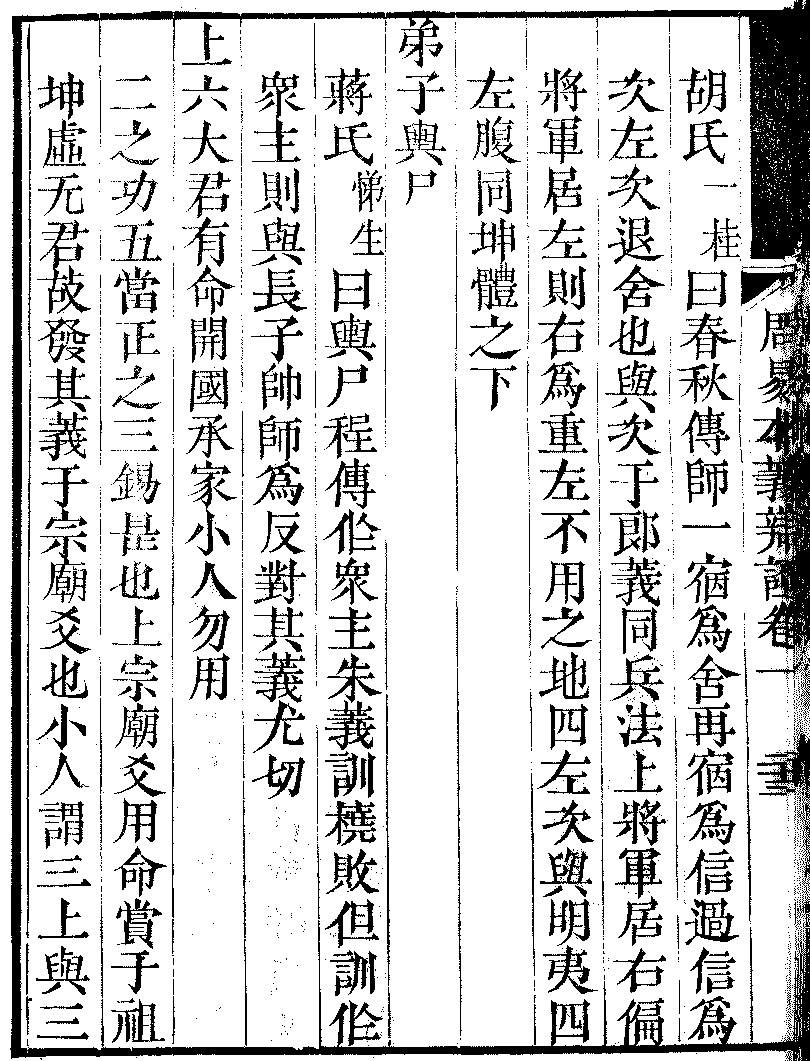 周易本義辯證卷一
胡氏一桂曰春秋傳師一宿為舍再宿為信過信為
次左次退舍也與次于郎義同兵法上將軍居右偏
將軍居左則右爲重左不用之地四左次與明夷四
左腹同坤體之下
弟子輿尸
蔣氏悌生曰輿尸程傳作衆主朱義訓橈敗但訓作
衆主則與長子帥師爲反對其義尤切
上六大君有命開國承家小人勿用
二之功五當正之三錫是也上宗廟爻用命賞于祖
坤虛无君故發其義于宗廟爻也小人謂三上與三